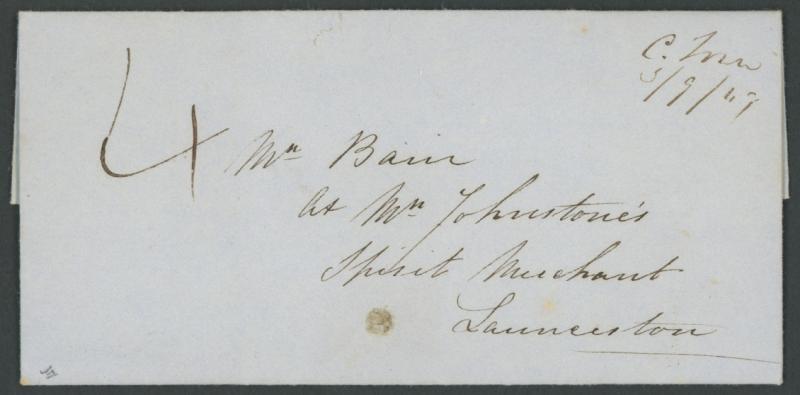 C. Town
3/9/49
4
Mr Bain
At Mr Johnstone's
Spirit Merchant
Launceston